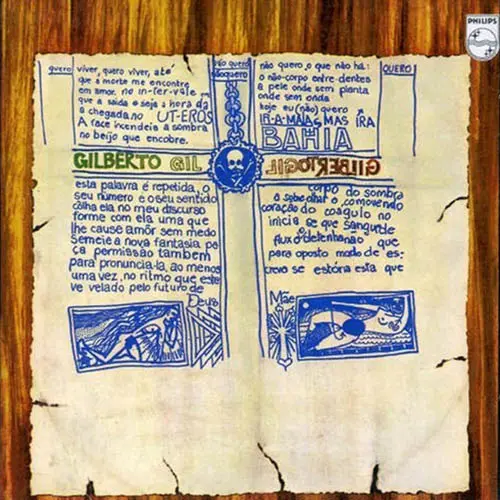 PHILIPS
quero
viver, quero viver, até
que a morte me encontre
em amor, no in-ter-vále
que a saida e seja a hora da
a chegada no UT-EROS
A face incendeia a sombra
no beijo que encobre.
não quero
nãoquero
não quero, o que não há:
o não-corpo entre-dentes
a pele onde sem planta
onde sem onda
hoje eu (não) quero
IR-A-MALAS MAS IRA
BAHIA
QUERO
GILBERTO GIL
GILBERTO GIL
esta palavra é repetida, o
seu número e o seu sentido
calha ela no meu discurso
forme com ela uma que
lhe cause amôr sem medo
Semeie a nova fantasia pe
ça permissão tambem
para pronuncia-la, ao menos
uma vez, no ritmo que este
ve velado pelo futuro de
Deus
corpo do sombra
a sobe olhar o, comovendo
coração do coagulo no
inicia se que sangurde
fluxo detenha não que
para oposto modo de es-
creve se estória esta que
Mãe